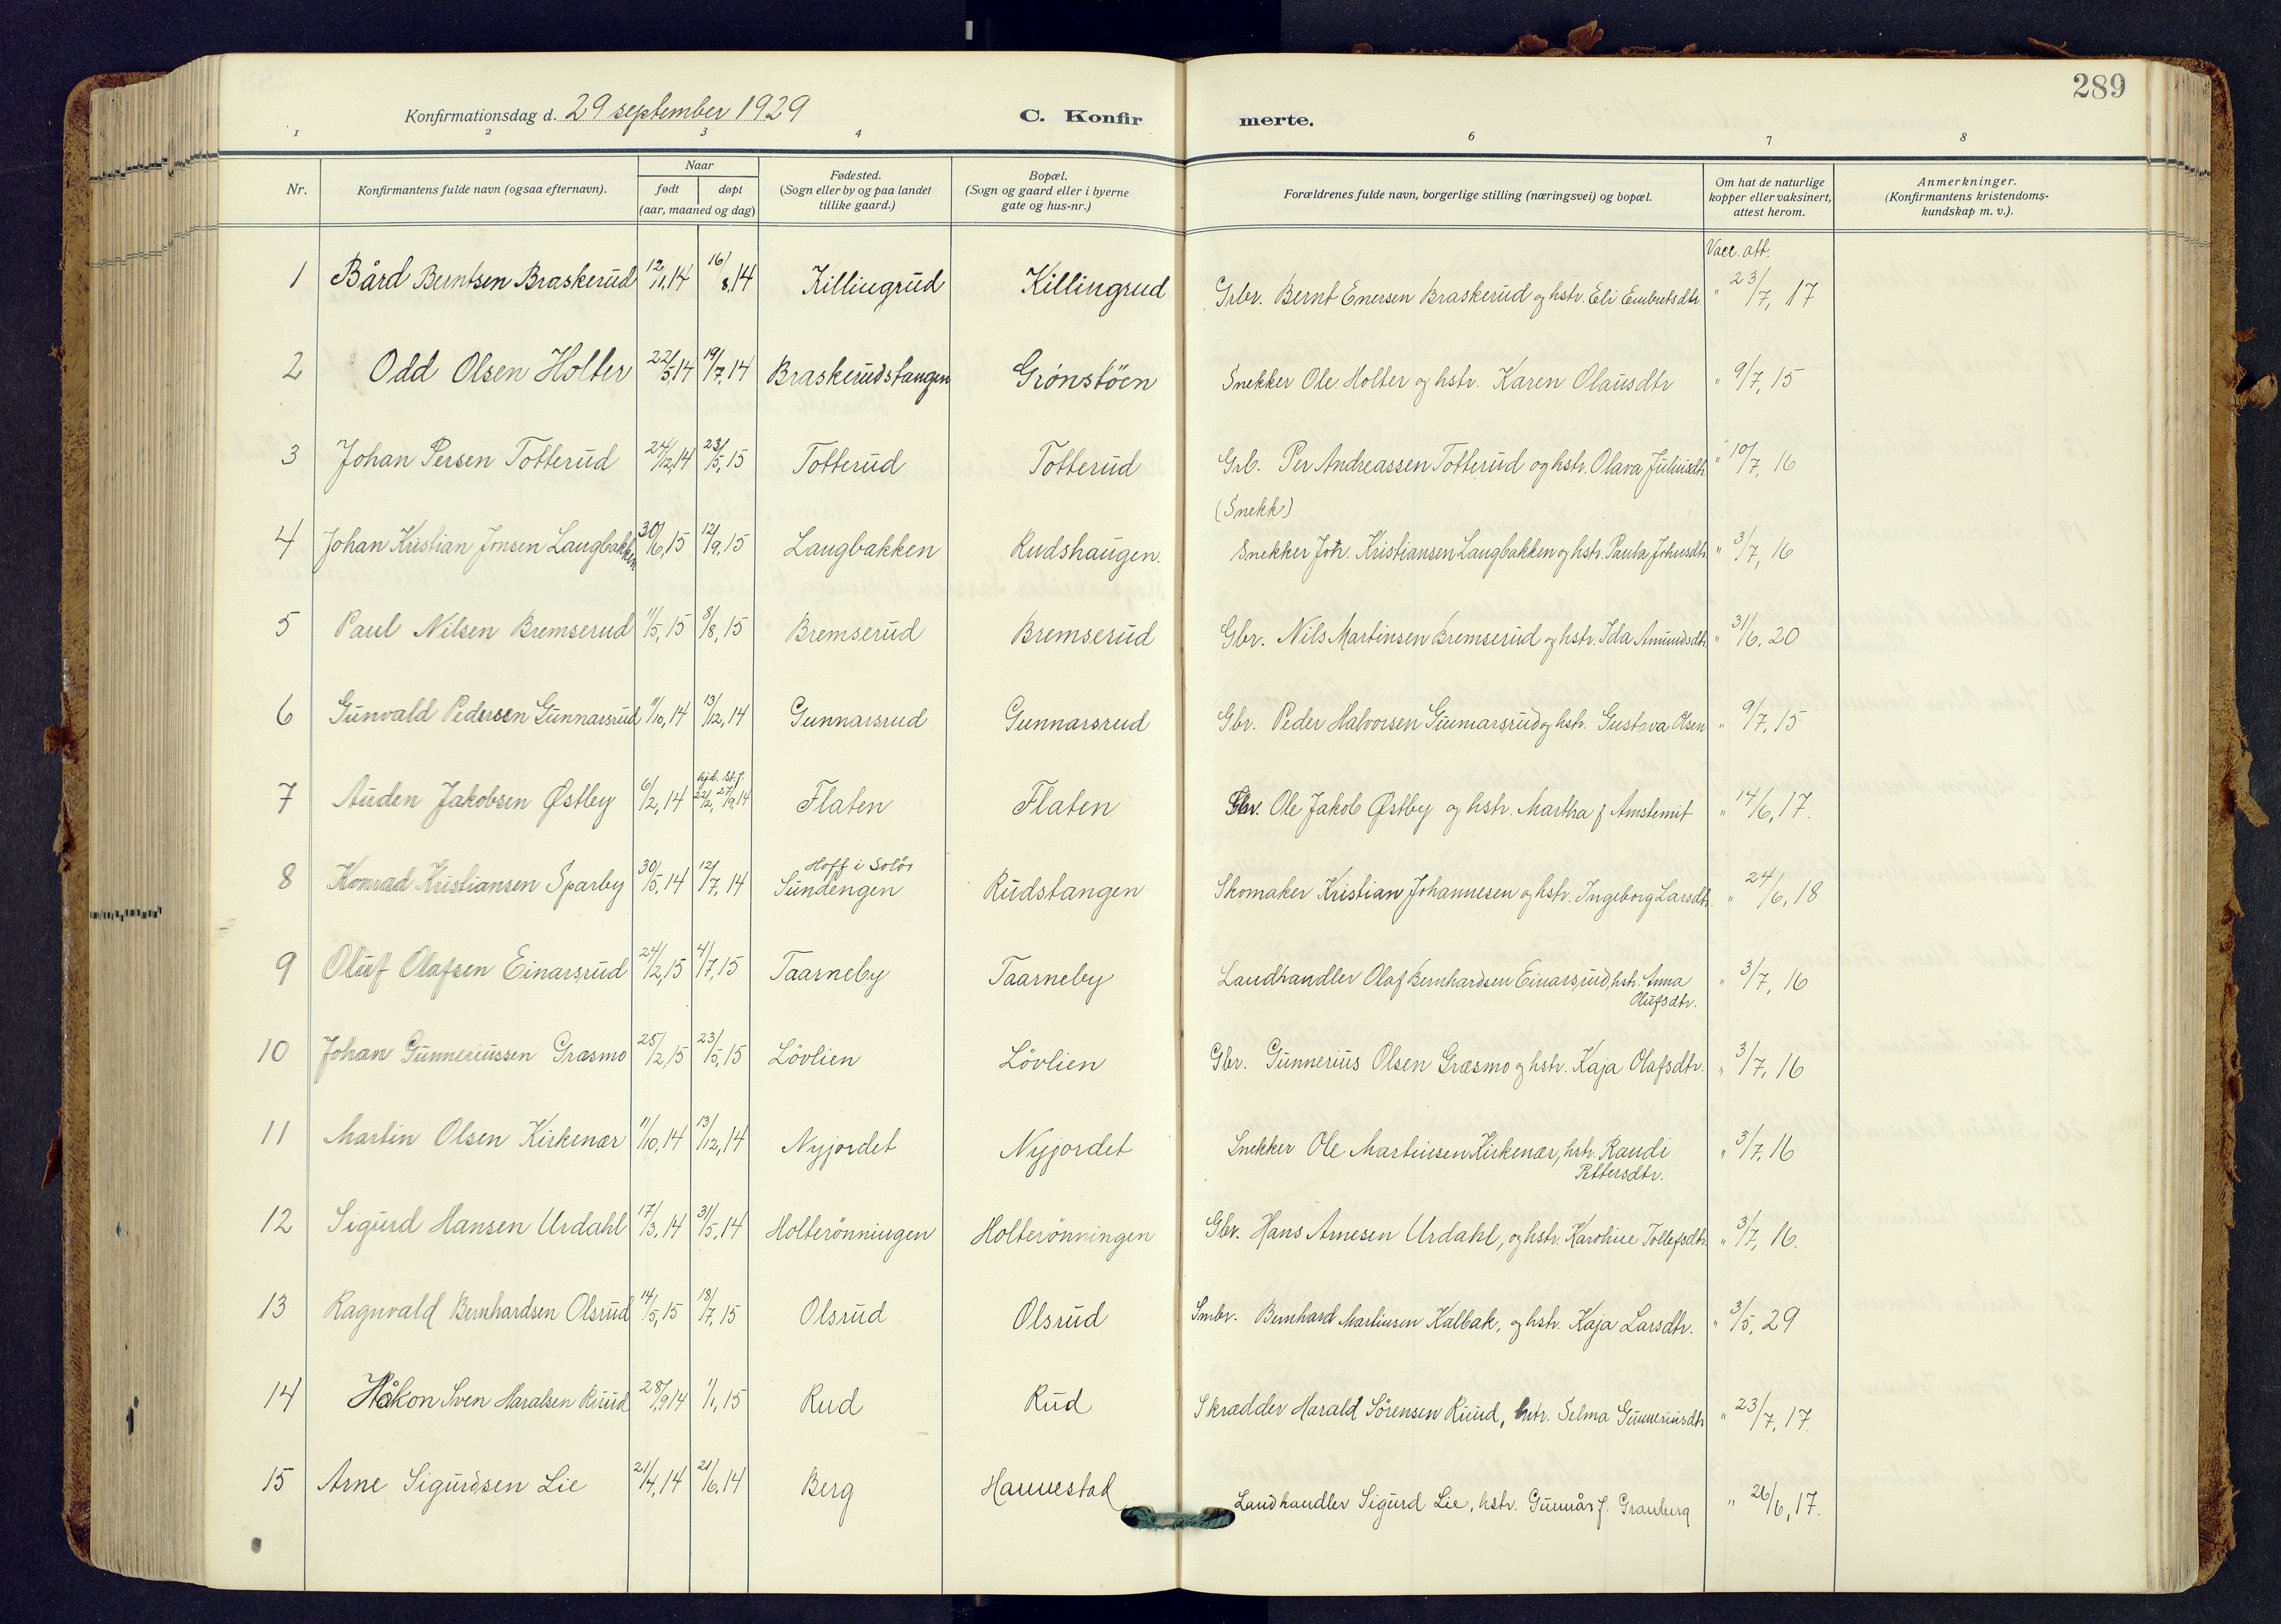 289
Konfirmationsdag d. 29 september 1929 C. Konfir merte.
1 2 3 4 6 7 8
Nr. Konfirmantens fulde navn (ogsaa efternavn). Naar født døpt (aar, maaned og dag) Fødested. (Sogn eller by og paa landet tillike gaard.) Bopæl. (Sogn og gaard eller i byerne gate og hus-nr.) Forældrenes fulde navn, borgerlige stilling (næringsvei) og bopæl. Om hat de naturlige kopper eller vaksinert, attest herom. Anmerkninger. (Konfirmantens kristendoms-kundskap m. v.).
Vacc. att.
1 Bård Berntsen Braskerud 12/11,14 16/8,14 Killingrud Killingrud Grbr. Bernt Enersen Braskerud og hstr. Eli Embretsdtr. " 23/7, 17
2 Odd Olsen Holter 22/5,14 19/7,14 Braskerudstangen Grönstöen Snekker Ole Holter og hstr. Karen Olausdtr " 9/7, 15
3 Johan Persen Totterud 24/12,14 23/5,15 Totterud Totterud Grb. Per Andreassen Totterud og hstr. Olava Juliusdtr. " 10/7, 16
(Snekk)
4 Johan Kristian Jonsen Laugbakken 30/6,15 12/9,15 Laugbakken Rudshaugen. Snekker Joh. Kristiansen Laugbakken og hstr. Paula Johnsdtr " 3/7, 16
5 Paul Nilsen Bremserud 11/5,15 8/8,15 Bremserud Bremserud Gbr. Nils Martinsen Bremserud og hstr. Ida Amundsdtr. " 3/6, 20
6 Gunvald Pedersen Gunnarsrud 11/10,14 13/12,14 Gunnarsrud Gunnarsrud Gbr. Peder Halvorsen Gunnarsrud og hstr. Gustava Olsen " 9/7, 15
7 Auden Jakobsen Østby 6/2,14 hjd. st.f. 22/2, 27/9,14 Flaten Flaten Gbr. Ole Jakob Østby og hstr. Martha f " 14/6, 17.
8 Konrad Kristiansen Sparby 30/5,14 12/7,14 Hoff i Solör Sundengen Rudstangen Skomaker Kristian Johannesen og hstr. Ingeborg Larsdtr. " 24/6, 18
9 Oluf Olafsen Einarsrud 24/2,15 4/7,15 Taarneby Taarneby Landhandler Olaf Bernhardsen Einarsrud, hstr. Anna Olufsdtr. " 3/7, 16
10 Johan Gunneriussen Græsmo 25/2,15 23/5,15 Lövlien Lövlien Gbr. Gunnerius Olsen Græsmo og hstr. Kaja Olafsdtr. " 3/7, 16
11 Martin Olsen Kirkenær 11/10,14 13/12,14 Nyjordet Nyjordet Snekker Ole Martinsen Kirkenær, hstr. Randi Pettersdtr. " 3/7, 16
12 Sigurd Hansen Urdahl 17/3,14 31/5,14 Holterönningen Holterönningen Gbr. Hans Arnesen Urdahl, og hstr. Karoline Tollefsdtr. " 3/7, 16.
13 Ragnvald Bernhardsen Olsrud 14/5,15 18/7,15 Olsrud Olsrud Smbr. Bernhard Martinsen Kalbak, og hstr. Kaja Larsdtr. " 3/5, 29
14 Håkon Sven Haralsen Ruud 28/9,14 1/1,15 Rud Rud Skrædder Harald Sörensen Ruud, hstr. Selma Gunneriusdtr " 23/7, 17.
15 Arne Sigurdsen Lie 21/4,14 21/6,14 Berg Hannestad Landhandler Sigurd Lie, hstr. f. Granberg " 26/6, 17.